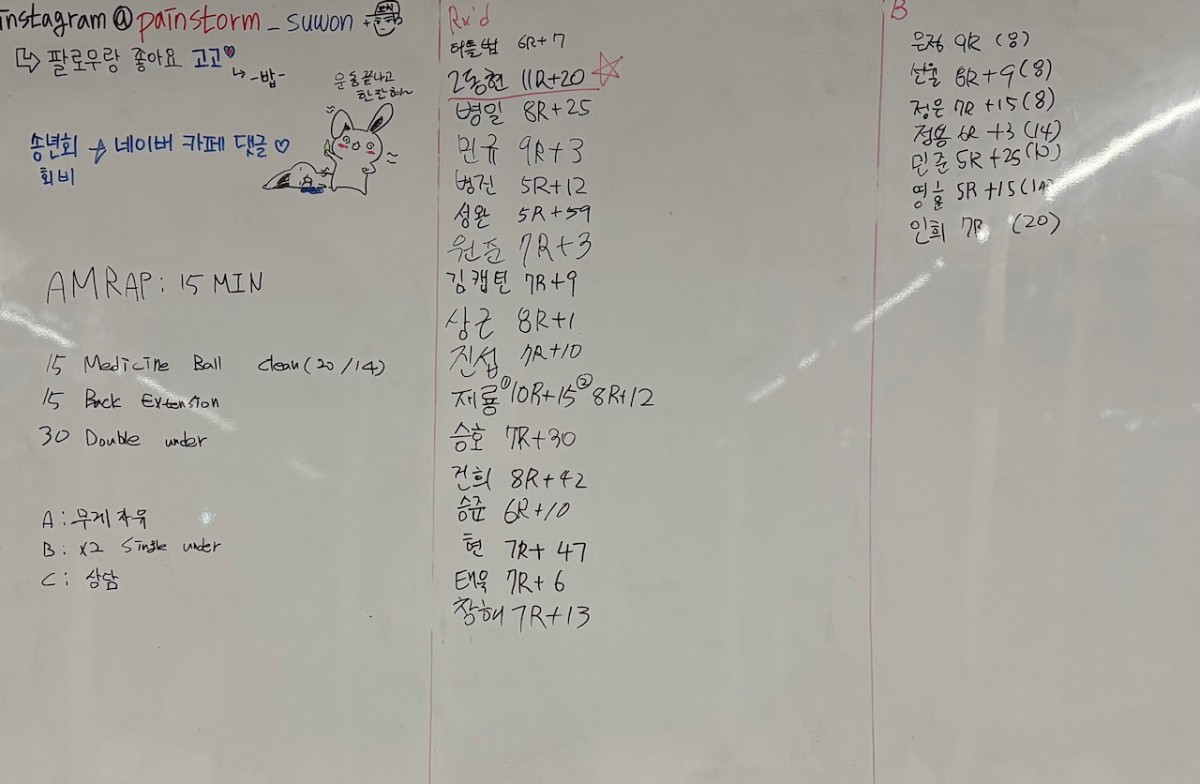 instagram@painstorm_suwon
↳ 팔로우랑 좋아요 고고♥
↳ -밥-
운동끝나고
한잔혀~
송년회 → 네이버 카페 댓글 ♡
회비
AMRAP: 15 MIN
15 Medicine Ball clean(20/14)
15 Back Extension
30 Double under
A: 무게자유
B: x2 Single under
C: 상담
Rx'd
6R+7
고동현 11R+20
병일 8R+25
민규 9R+3
병진 5R+12
성완 5R+59
원준 7R+3
김캡틴 7R+9
상근 8R+1
진섭 7R+10
재룡 ①10R+15 ②8R+12
승호 7R+30
건희 8R+42
승준 6R+10
현 7R+47
태욱 7R+6
창해 7R+13
B
은정 9R (8)
8R+9(8)
정은 7R+15(8)
정용 6R+3(14)
민준 5R+25(10)
영훈 5R+15(14)
인희 7R (20)